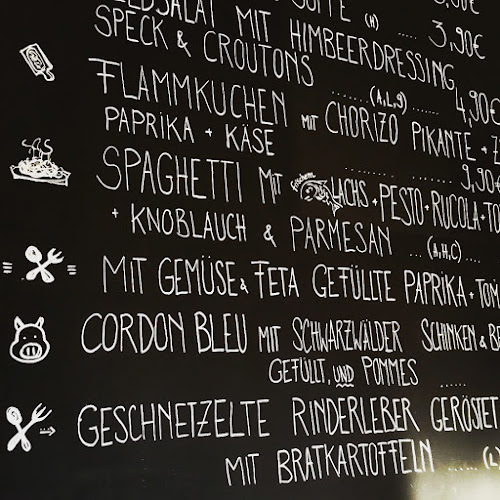 SUPPE (H) ..... 3,90€
ELDSALAT MIT HIMBEERDRESSING
SPECK & CROUTONS ........(A,L,9)....... 4,90€
FLAMMKUCHEN MIT CHORIZO PIKANTE + Z
PAPRIKA + KÄSE ........... 9,90€
SPAGHETTI MIT LACHS + PESTO + RUCOLA + TO
+ KNOBLAUCH & PARMESAN ...(A,H,C)....
MIT GEMÜSE & FETA GEFÜLLTE PAPRIKA + TOM
CORDON BLEU MIT SCHWARZWÄLDER SCHINKEN & B
GEFÜLLT, UND POMMES ......
GESCHNETZELTE RINDERLEBER GERÖSTET
MIT BRATKARTOFFELN ......(L)